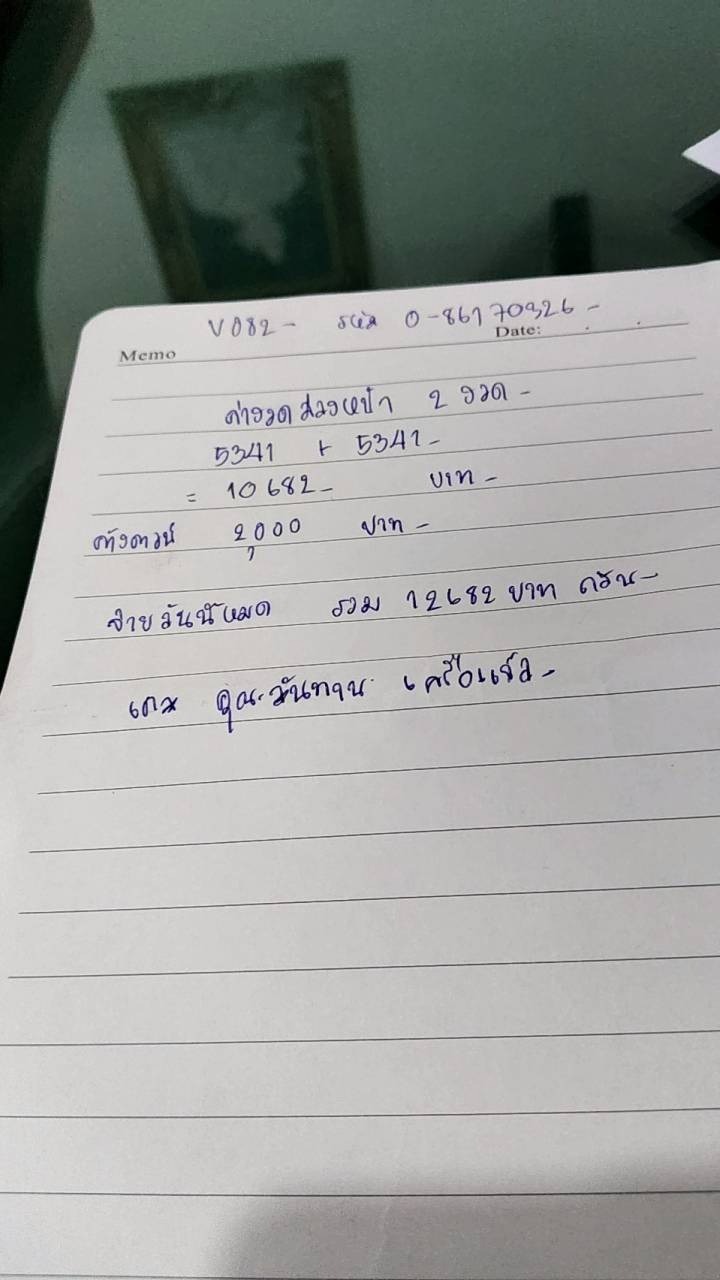 V082- รหัส 0-86170326-
Memo Date:
ค่างวดล่วงหน้า 2 งวด-
5341 + 5341-
= 10682- บาท-
ค้างดาวน์ 2,000 บาท-
จ่ายวันนี้หมด รวม 12682 บาท ครับ-
เคส คุณ.วันทาน เครือแช่ว-